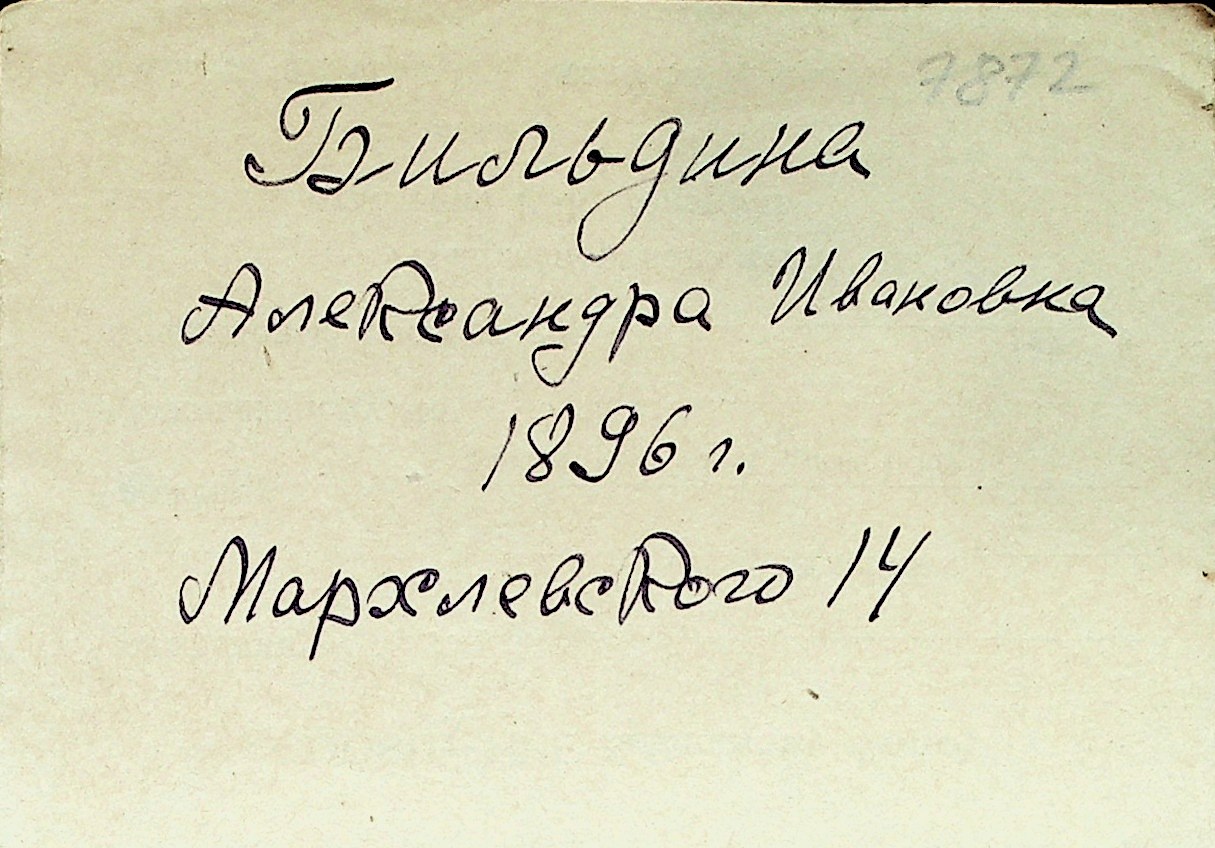 7872
Бильдина
Александра Ивановна
1896 г.
Мархлевского 14